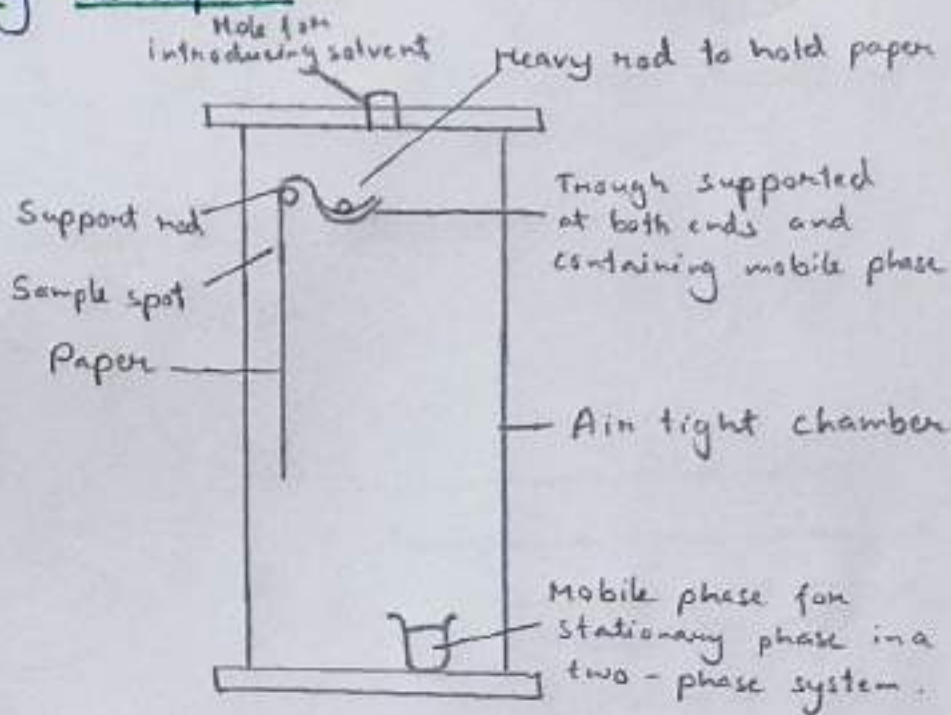 Hole for
introducing solvent
Heavy rod to hold paper
Support rod
Trough supported
at both ends and
containing mobile phase
Sample spot
Paper
Air tight chamber
Mobile phase for
stationary phase in a
two-phase system.